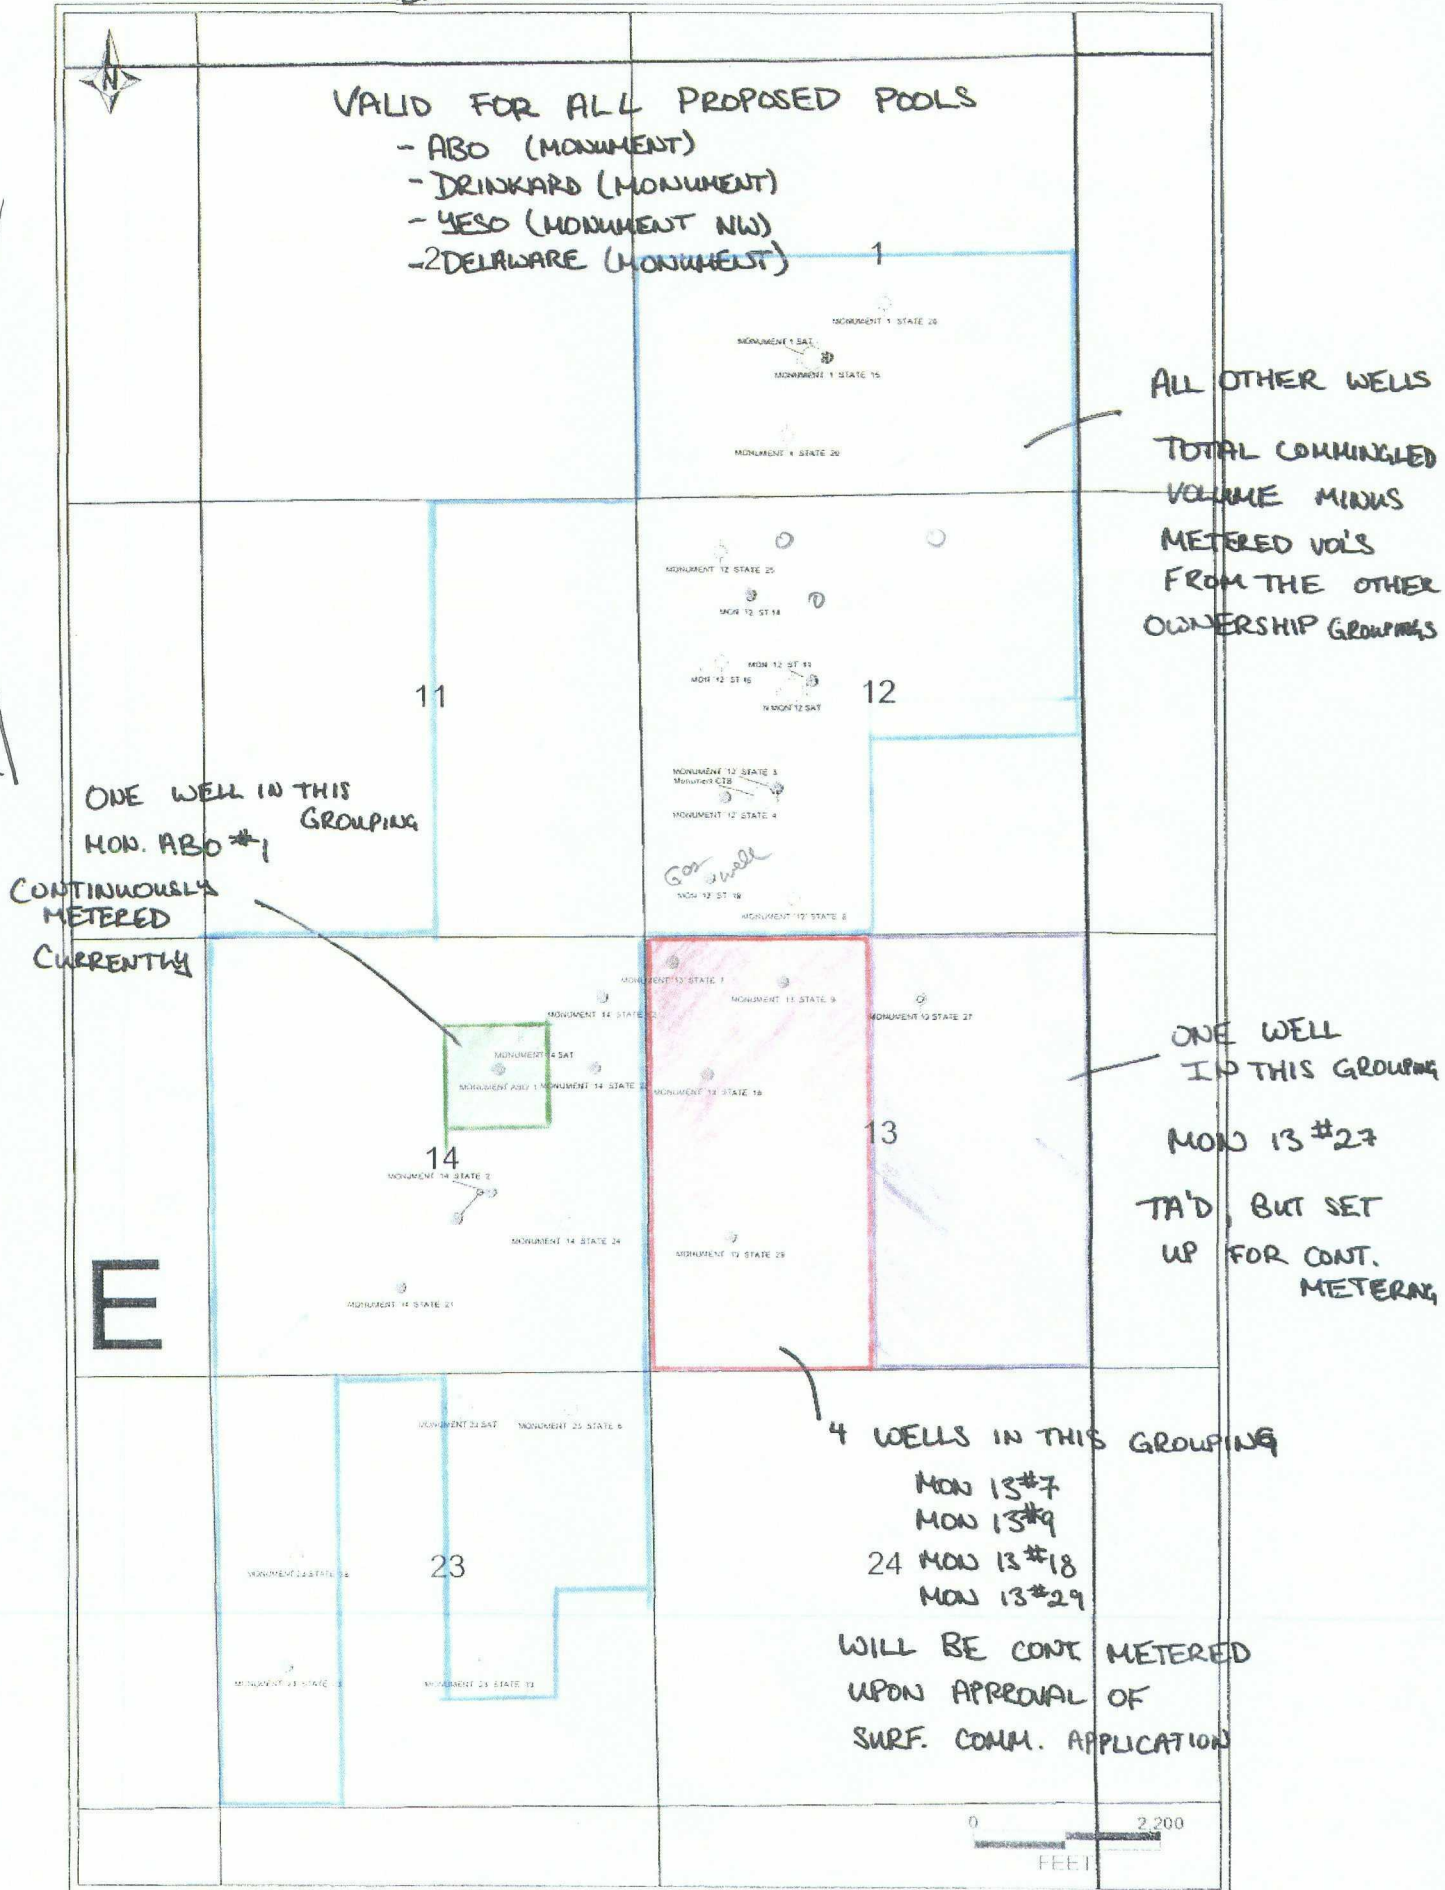 N
VALID FOR ALL PROPOSED POOLS
- ABO (MONUMENT)
- DRINKARD (MONUMENT)
- YESO (MONUMENT NW)
-2DELAWARE (MONUMENT)
1
MONUMENT 1 STATE 26
MONUMENT 1 SAT
MONUMENT 1 STATE 15
MONUMENT 1 STATE 20
ALL OTHER WELLS
TOTAL COMMINGLED
VOLUME MINUS
METERED VOL'S
FROM THE OTHER
OWNERSHIP GROUPINGS
MONUMENT 12 STATE 25
MON 12 ST 14
MON 12 ST 11
MON 12 ST 16
N MON 12 SAT
11
12
MONUMENT '12' STATE 3
Monument CTB
MONUMENT '12' STATE 4
Gas well
MON '12' ST 19
MONUMENT '12' STATE
ONE WELL IN THIS
GROUPING
MON. ABO #1
CONTINUOUSLY
METERED
CURRENTLY
MONUMENT 13 STATE 7
MONUMENT 13 STATE 9
MONUMENT 13 STATE 27
MONUMENT 14 STATE
MONUMENT 14 SAT
MONUMENT ABO 1
MONUMENT 14 STATE
MONUMENT 13 STATE 18
14
13
ONE WELL
IN THIS GROUPING
MON 13 #27
TA'D, BUT SET
UP FOR CONT.
METERING
MONUMENT 14 STATE 2
MONUMENT 14 STATE 24
MONUMENT 13 STATE 29
MONUMENT 14 STATE 21
E
MONUMENT 23 SAT
MONUMENT 23 STATE 6
4 WELLS IN THIS GROUPING
MON 13#7
MON 13#9
24 MON 13#18
MON 13#29
23
MONUMENT 23 STATE
MONUMENT 23 STATE
MONUMENT 23 STATE
WILL BE CONT METERED
UPON APPROVAL OF
SURF. COMM. APPLICATION
0 2,200
FEET